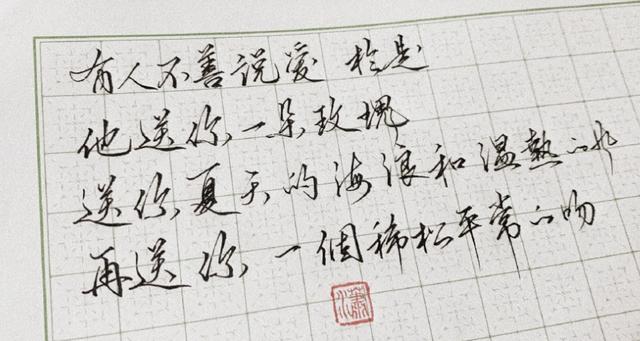 有人不善说爱 於是
他送你一朵玫瑰
送你夏天的海浪和温熱的
再送你一個稀松平常的吻
潇